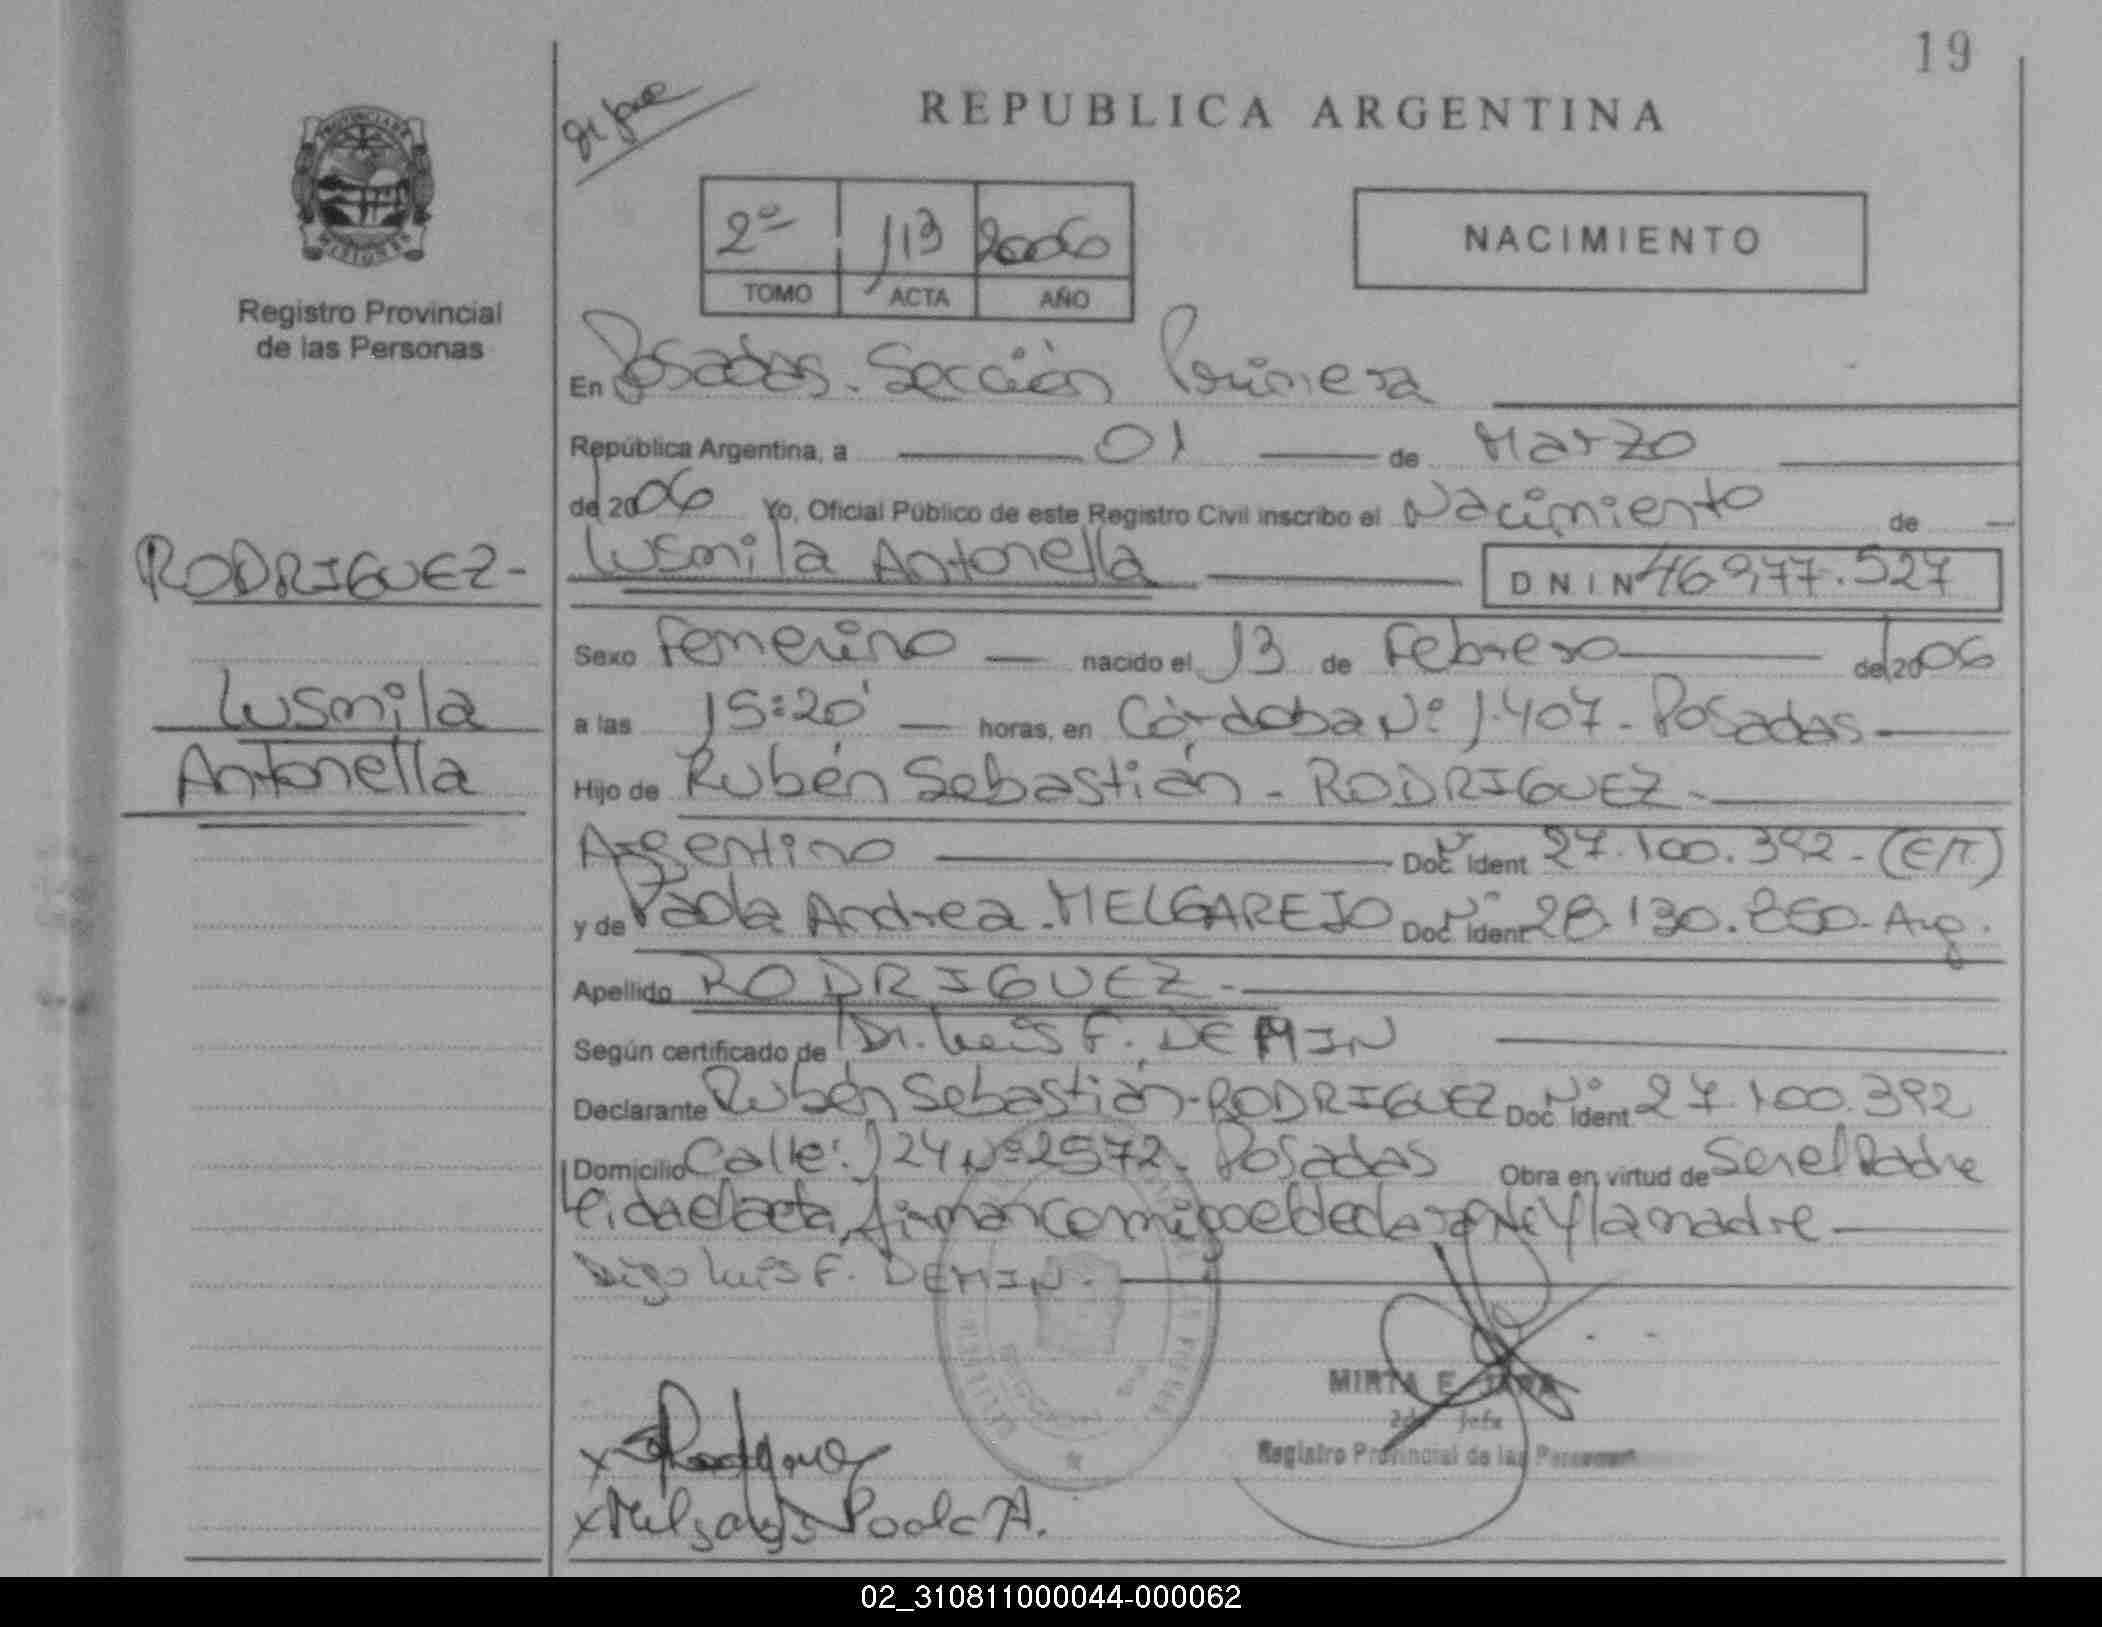 19
REPUBLICA ARGENTINA
PROVINCIA DE
MISIONES
Registro Provincial
de las Personas
2º 113 2006
TOMO ACTA AÑO
NACIMIENTO
En Posadas. Sección Primera
República Argentina, a 01 de Marzo
de 2006 Yo, Oficial Público de este Registro Civil inscribo el Nacimiento de
RODRIGUEZ-
Lusmila Antonella D N I N 46.977.527
Sexo Femenino nacido el 13 de Febrero de 2006
Lusmila
Antonella
a las 15:20' horas, en Córdoba Nº 1.407 - Posadas
Hijo de Rubén Sebastián - RODRIGUEZ-
Argentino Doc. Ident Nº 27.100.392 - (E/T)
y de Paola Andrea. MELGAREJO Doc. Ident Nº 28.130.850. Arg.
Apellido RODRIGUEZ-
Según certificado de Dr. Luis F. DEMIN
Declarante Rubén Sebastián-RODRIGUEZ Doc. Ident. Nº 27.100.392
Domicilio Calle: 124 Nº 2572. Posadas Obra en virtud de Ser el Padre
Leida el acta, firman conmigo el declarante y la madre
Digo Luis F. DEMIN.
MIRTA E.
2da Jefa
Registro Provincial de las Personas
x Rodríguez
x Melgarejo Paola A.
02_310811000044-000062